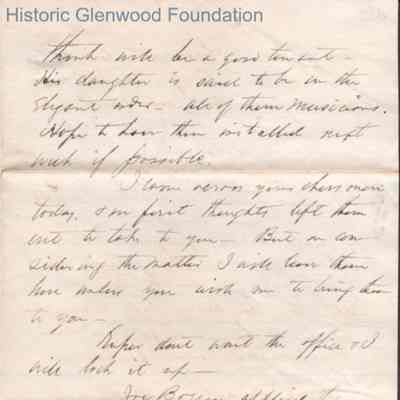 Historic Glenwood Foundation
think will be a good tenant —
His daughter is said to be on the
Elegant order — all of them musicians.
Hope to have them installed next
week if possible.
I came across your chessmen
today, & on first thoughts left them
out to take to you — But on con-
sidering the matter I will leave them
here unless you wish me to bring them
to you —
don't want the office & I
will lock it up —
Joe